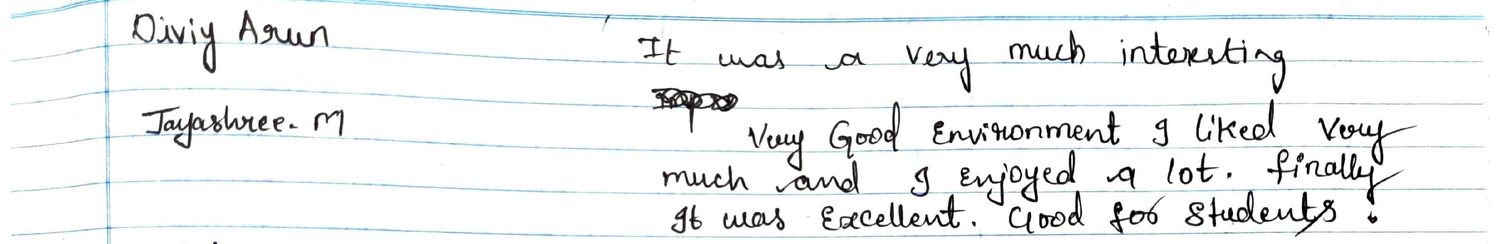 Diviy Arun It was a very much interesting
Jayashree. M Very Good Environment I liked Very
much and I enjoyed a lot. finally
It was Excellent. Good for Students.